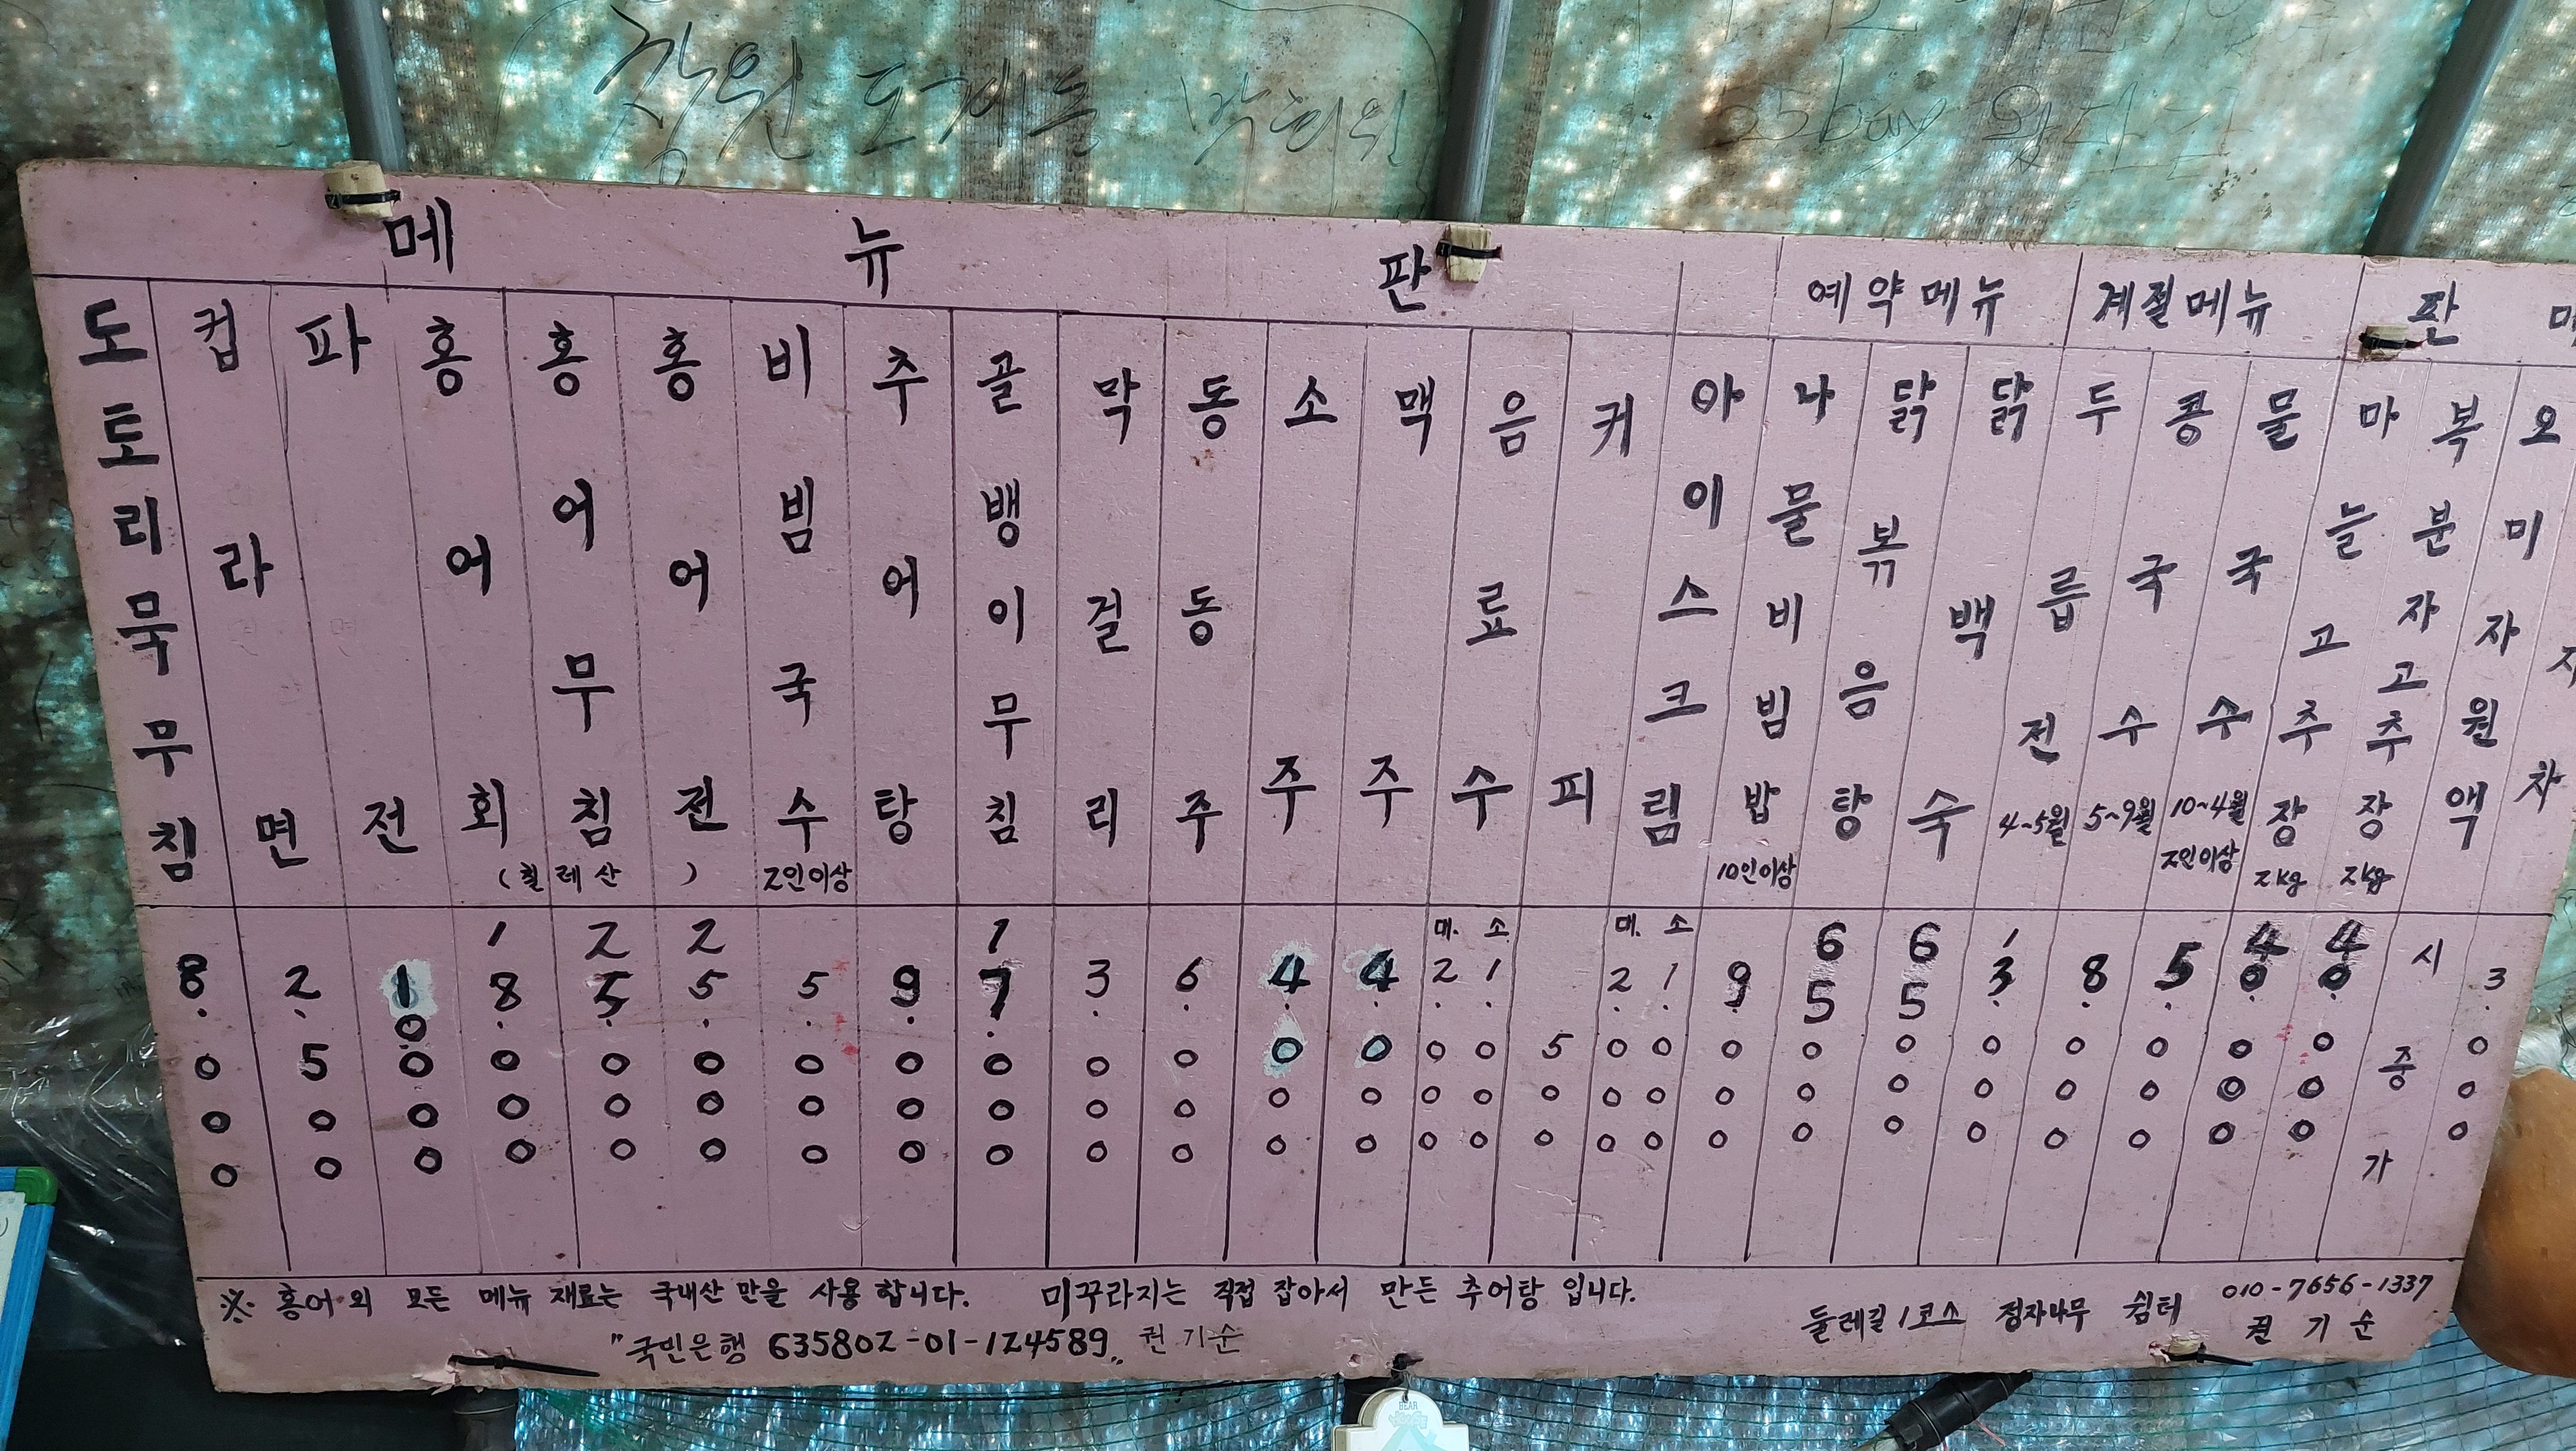 창원 도계동 박희원
메뉴판
예약메뉴
계절메뉴
판
도토리묵무침
8.000
컵라면
2.500
파전
10.000
홍어회
18.000
홍어무침
25.000
홍어전
25.000
(칠레산)
비빔국수
2인이상
5.000
추어탕
9.000
골뱅이무침
17.000
막걸리
3.000
동동주
6.000
소주
4.000
맥주
4.000
음료수
대. 소
2.000 1.000
커피
500
아이스크림
대. 소
2.000 1.000
나물비빔밥
10인이상
9.000
닭볶음탕
65.000
닭백숙
65.000
두릅전
4~5월
13.000
콩국수
5~9월
8.000
물국수
10~4월
2인이상
5.000
마늘고추장
2kg
40.000
복분자고추장
2kg
40.000
오미자원액
시중가
차
3.000
※ 홍어 외 모든 메뉴 재료는 국내산 만을 사용 합니다. 미꾸라지는 직접 잡아서 만든 추어탕 입니다.
"국민은행 635802-01-124589„ 권기순
둘레길 1코스 정자나무 쉼터
010-7656-1337
권기순
BEAR